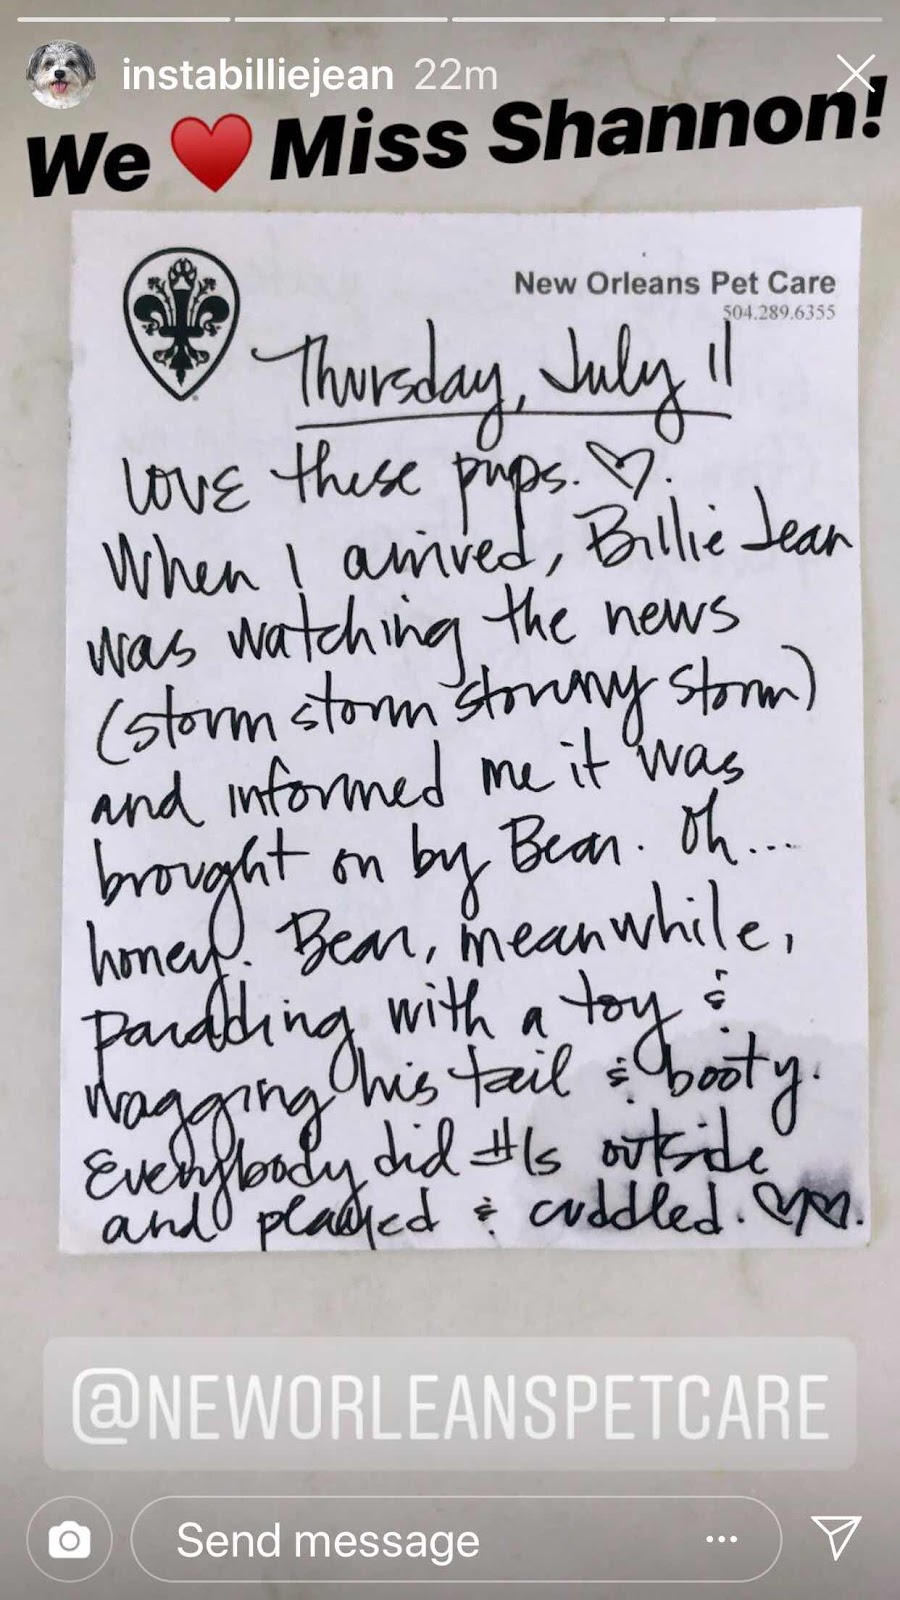 instabilliejean 22m
We ♥ Miss Shannon!
New Orleans Pet Care
504.289.6355
Thursday, July 11
Love these pups. ♡.
When I arrived, Billie Jean
was watching the news
(storm storm stormy storm)
and informed me it was
brought on by Bear. Oh...
honey. Bear, meanwhile,
parading with a toy &
wagging his tail & booty.
Everybody did #1s outside
and played & cuddled. ♡♡.
@NEWORLEANSPETCARE
Send message